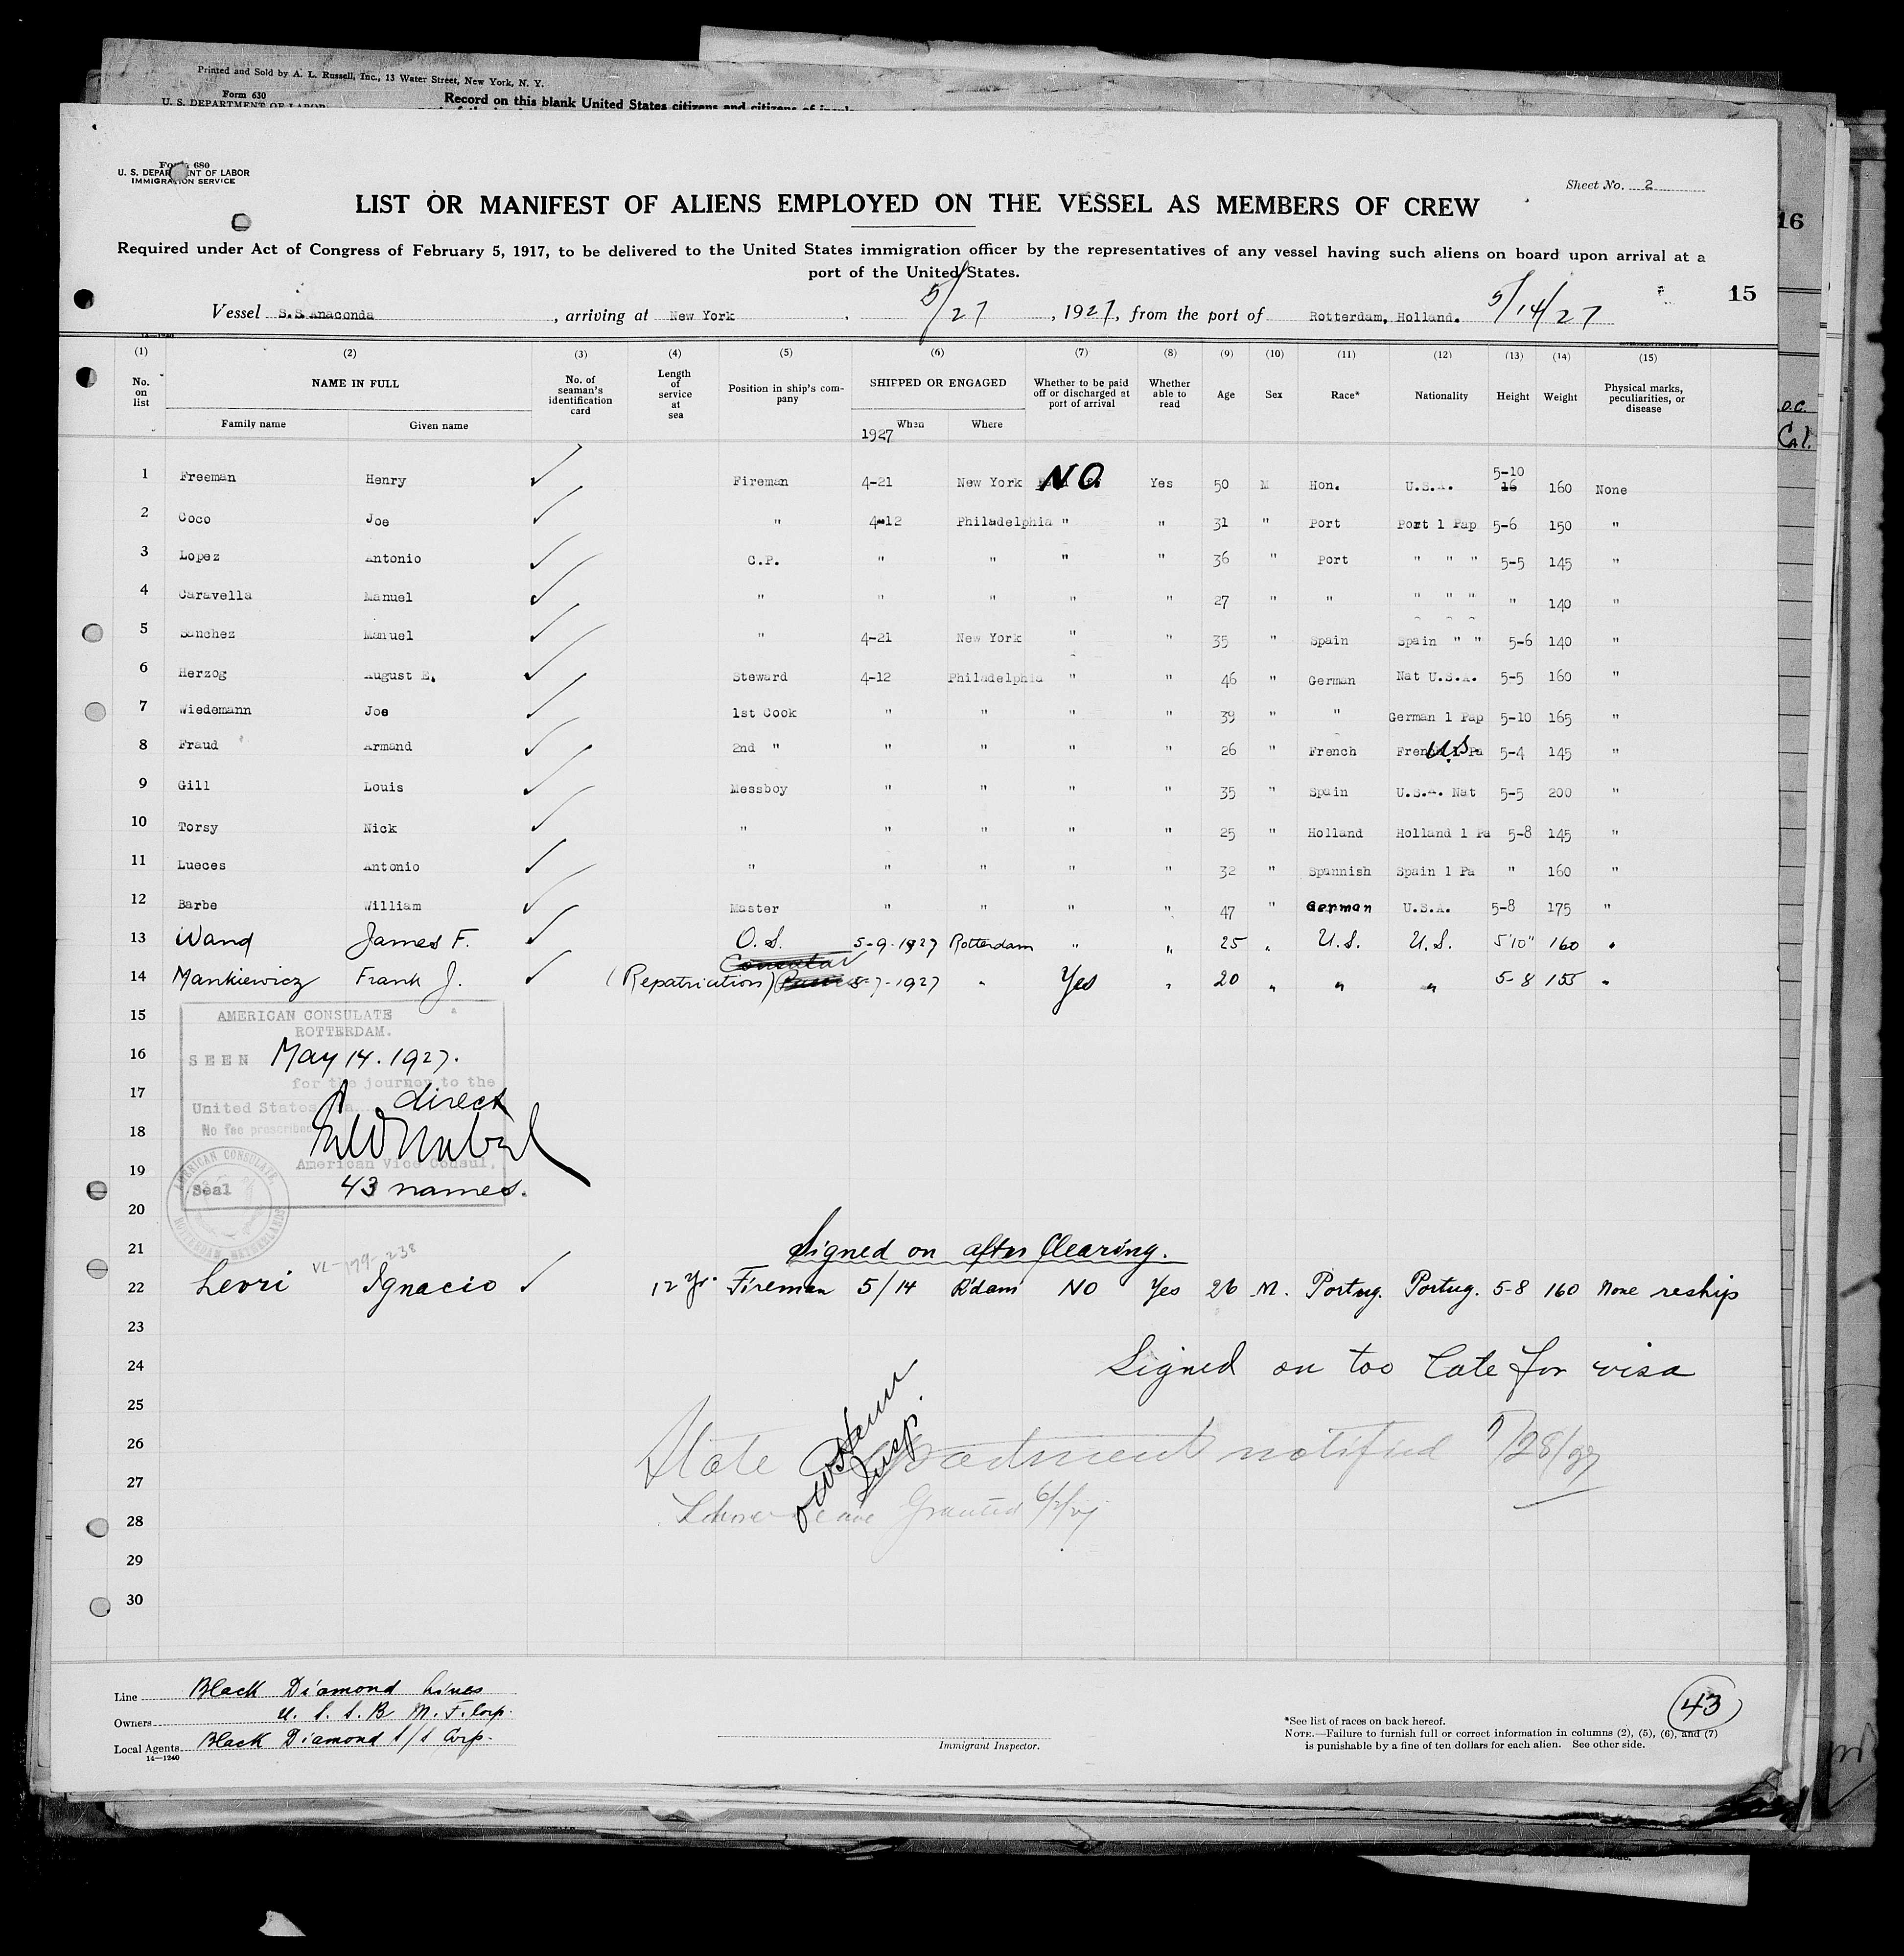 Printed and Sold by A. L. Russell, Inc., 13 Water Street, New York, N. Y.
Form 630
U. S. DEPARTMENT OF LABOR
Record on this blank United States citizens and citizens of
16
O.C.
Cal.
Form 680
U. S. DEPARTMENT OF LABOR
IMMIGRATION SERVICE
Sheet No. 2
LIST OR MANIFEST OF ALIENS EMPLOYED ON THE VESSEL AS MEMBERS OF CREW
Required under Act of Congress of February 5, 1917, to be delivered to the United States immigration officer by the representatives of any vessel having such aliens on board upon arrival at a
port of the United States.
15
Vessel S.S. Anaconda, arriving at New York 5/27, 1927, from the port of Rotterdam, Holland. 5/14/27
14—1240
(1) (2) (3) (4) (5) (6) (7) (8) (9) (10) (11) (12) (13) (14) (15)
No. on list NAME IN FULL Family name Given name No. of seaman's identification card Length of service at sea Position in ship's company SHIPPED OR ENGAGED When Where Whether to be paid off or discharged at port of arrival Whether able to read Age Sex Race* Nationality Height Weight Physical marks, peculiarities, or disease
1927
1 Freeman Henry ✓ Fireman 4-21 New York NO Yes 50 M Hon. U.S.A. 5-10 16 160 None
2 Coco Joe ✓ " 4-12 Philadelphia " " 31 " Port Port 1 Pap 5-6 150 "
3 Lopez Antonio ✓ C.P. " " " " 36 " Port " " " 5-5 145 "
4 Caravella Manuel ✓ " " " " " 27 " " " " " " 140 "
5 Sanchez Manuel ✓ " 4-21 New York " " 35 " Spain Spain " " 5-6 140 "
6 Herzog August E. ✓ Steward 4-12 Philadelphia " " 46 " German Nat U.S.A. 5-5 160 "
7 Wiedemann Joe ✓ 1st Cook " " " " 39 " " German 1 Pap 5-10 165 "
8 Fraud Armand ✓ 2nd " " " " " 26 " French French 1 Pa U.S. 5-4 145 "
9 Gill Louis ✓ Messboy " " " " 35 " Spain U.S.A. Nat 5-5 200 "
10 Torsy Nick ✓ " " " " " 25 " Holland Holland 1 Pa 5-8 145 "
11 Lueces Antonio ✓ " " " " " 32 " Spannish Spain 1 Pa " 160 "
12 Barbe William ✓ Master " " " " 47 " German U.S.A. 5-8 175 "
13 Wand James F. ✓ O.S. 5-9-1927 Rotterdam " " 25 " U.S. U.S. 5'10" 160 "
14 Mankiewicz Frank J. ✓ (Repatriation) 5-7-1927 " Yes " 20 " " " 5-8 155 "
15
AMERICAN CONSULATE
ROTTERDAM.
16
SEEN May 14. 1927.
for the journey to the
17
United States via direct
No fee prescribed
18
19
American Vice Consul.
Seal 43 names.
AMERICAN CONSULATE ROTTERDAM NETHERLANDS
20
21 Signed on after Clearing.
VL-179-238
22 Levri Ignacio ✓ 12 Yr. Fireman 5/14 R'dam NO Yes 26 M. Portug. Portug. 5-8 160 None reship
23
24 Signed on too late for visa
25
26 State Department notified 5/28/27
Insp.
27
28 Granted 6/1/27
29
30
Line Black Diamond Lines
Owners U. S. S. B. M. F. Corp.
Local Agents Black Diamond S/S Corp.
14—1240
Immigrant Inspector.
43
*See list of races on back hereof.
NOTE.—Failure to furnish full or correct information in columns (2), (5), (6), and (7)
is punishable by a fine of ten dollars for each alien. See other side.